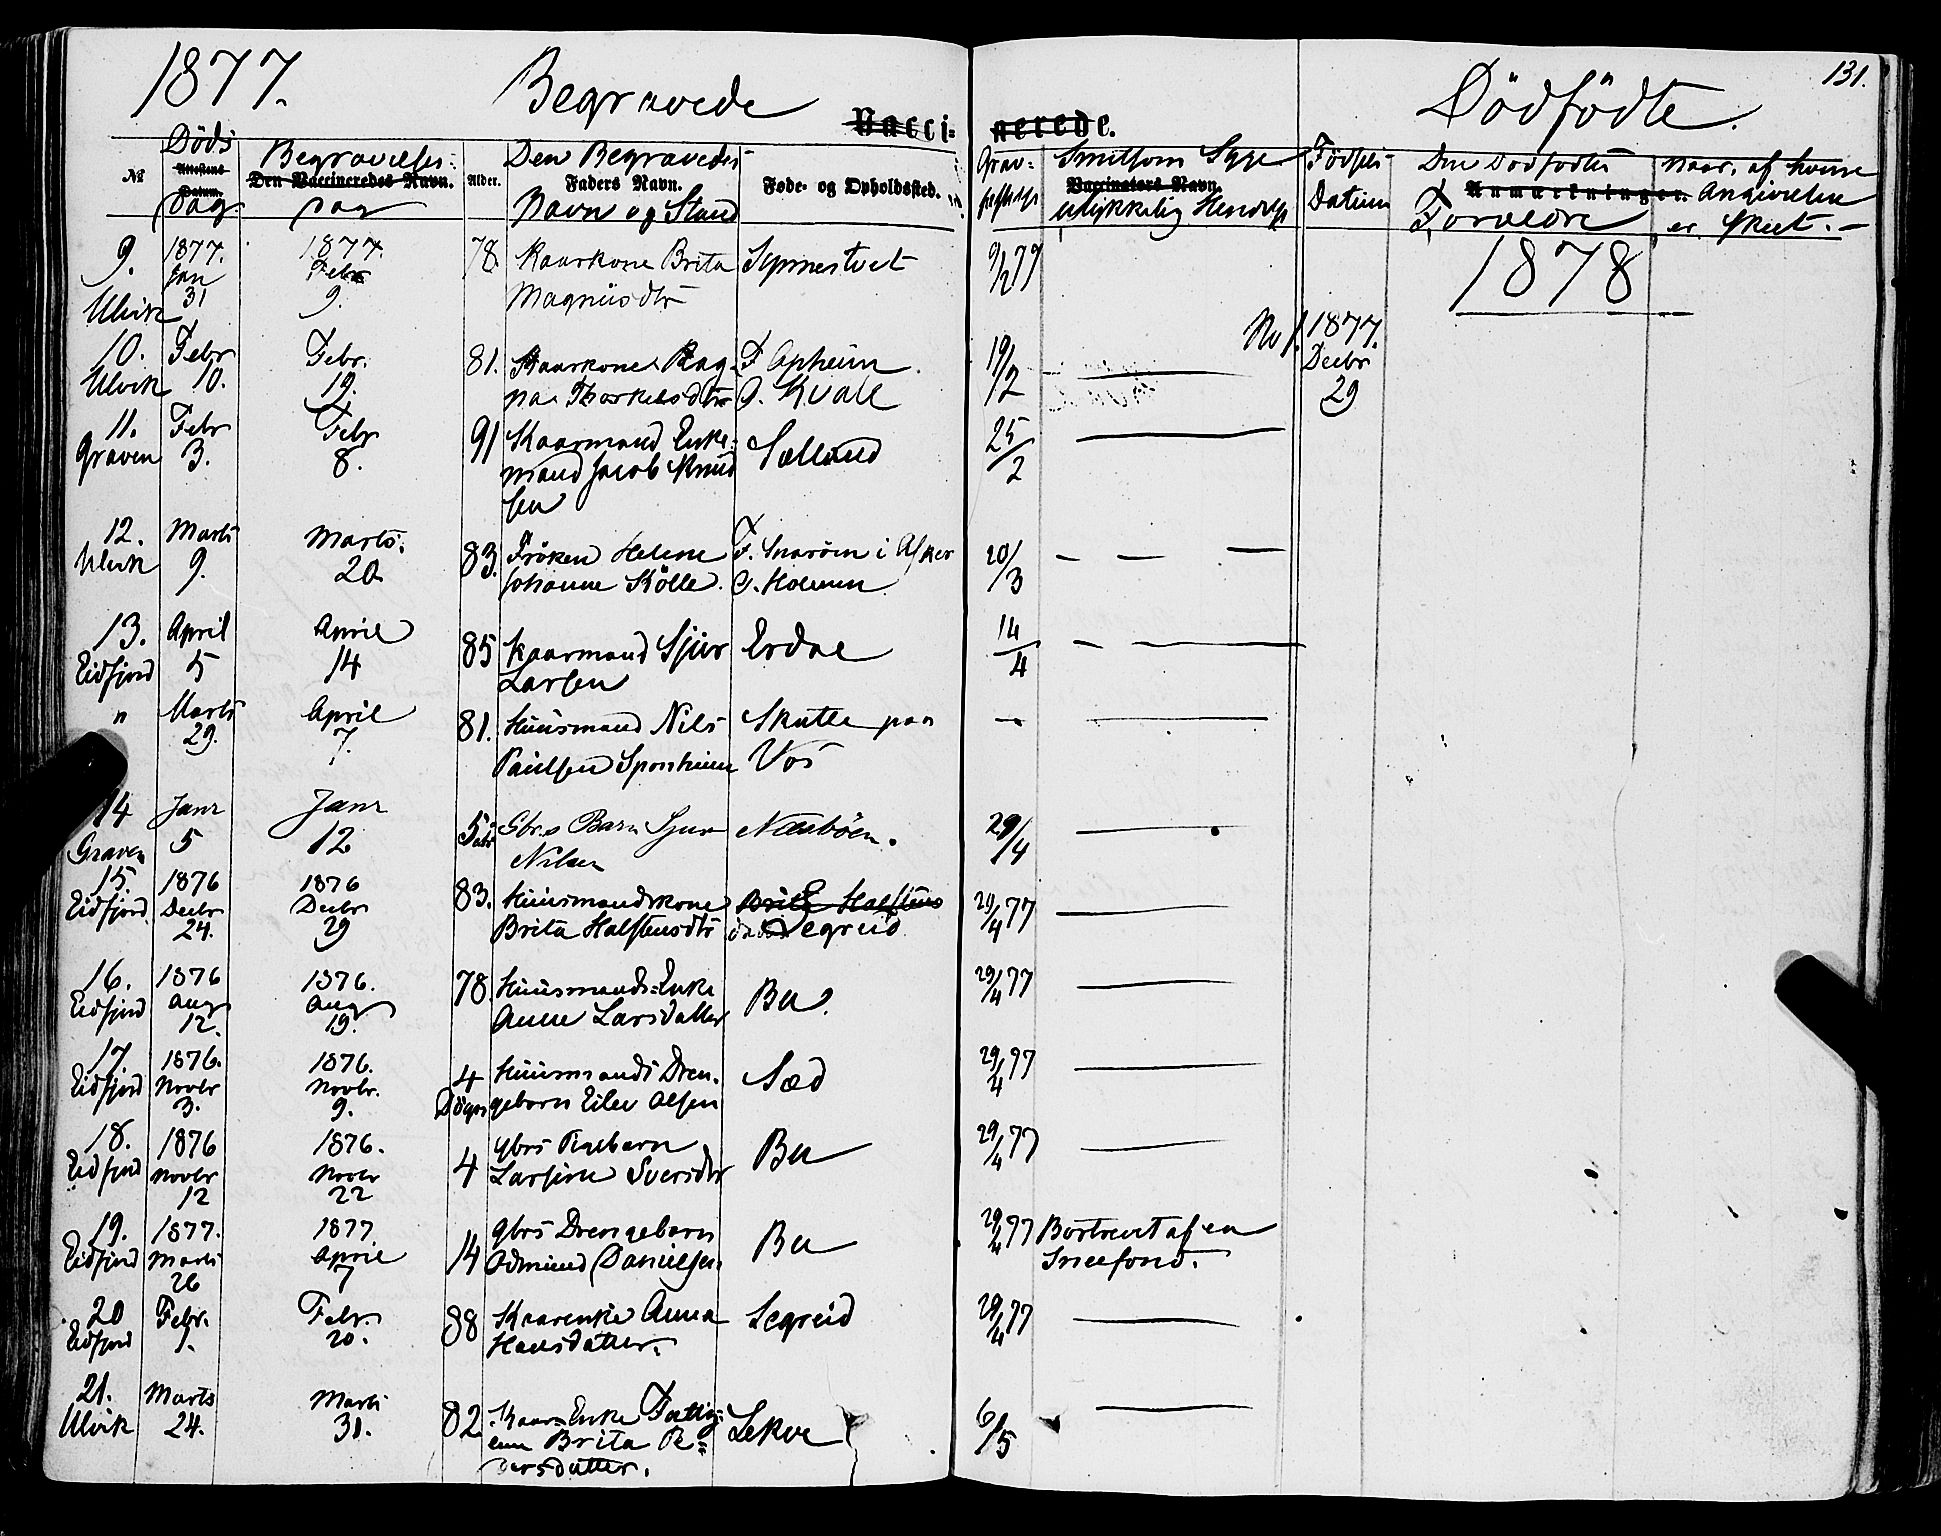 131.
1877. Begravede Dödfödte.
Vacci- nerede.
No Döds Attestens Datum. Dag
Begravelses- Den Vaccineredes Navn. Dag
Alder.
Den Begravedes Faders Navn. Navn og Stand
Føde- og Opholdssted.
Grav-
Smitsom Syge Vaccinators Navn. Ulykkelig Hendelse
Födsels Datum
Den Dödfödtes Anmærkninger. Forældre
Naar, af hvem Angivelsen er skeet.
9. 1877. 1877. 78. Kaarkone Brita Sysnestvet 9/2 77
Jan Febr Magnusdtr
Ulvik 31 9.
1878
No 1. 1877.
Decbr
29
10. Febr Febr. 81. Kaarkone Rag- F. Opheim 19/2
Ulvik 10. 19. na Thorkelsdtr O. Kvale
11. Febr Febr 91 Kaarmand Enke- Sælland 25/2
Graven 3. 8. mand Jacob Knud
sen
12. Marts Marts. 83. Fröken Helene F. Snaröen i Asker 20/3
Ulvik 9. 20 Johanne Kölle. O. Holmen
13. April April 85 Kaarmand Sjur Erdal 14/4
Eidfjord 5 14 Larsen
" Marts April 81. Huusmand Nils Skutle paa
29. 7. Paulsen Sponheim Vos
14 Janr Janr 5 Gbrs Barn Sjur Næsbøen. 29/4
Graven 5 12 Nilsen
15. 1876 1876 83. Huusmandskone Brita Halstens 29/4 77
Eidfjord Decbr Decbr Brita Halstensdtr Segreid
24. 29
16. 1876 1876. 78. Huusmands-Enke Bu. 29/4 77
Eidfjord Aug Aug Anne Larsdatter
12. 19.
17. 1876. 1876. 4 Huusmands Dren- Sæd 29/4 77
Eidfjord Novbr Novbr. Dögn gebarn Eilev Olsen
3. 9.
18. 1876 1876. 4 Gbrs Pigebarn Bu 29/4 77
Eidfjord Novbr Novbr Larsine Sversdtr
12 22
19. 1877. 1877. 14 Gbrs Drengebarn Bu 29/4 77 Bortrevet af en
Eidfjord Marts April Odmund Danielsen Sneefond.
26 7
20 Febr. Febr. 88 Kaarenke Anna Segreid 29/4 77
Eidfjord 1. 20. Hansdatter.
21. Marts Marts 82 Kaar-Enke Fattig- Lekve 6/5
Ulvik 24. 31. em Brita Pe-
dersdatter.